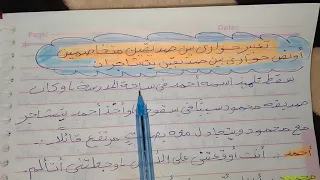 Page: Date:
تعبير حواري بين صديقين متخاصمين
أو نص حواري بين صديقين يتشاجران
سقط تلميذ اسمه أحمد في ساحة المدرسة وكان
صديقه محمود سببا في سقوطه وأخذ أحمد يتشاجر
مع محمود ويتحدث معه بصوت مرتفع قائلا:
أحمد: أنت أوقعتني على الأرض وجعلتني أتألم